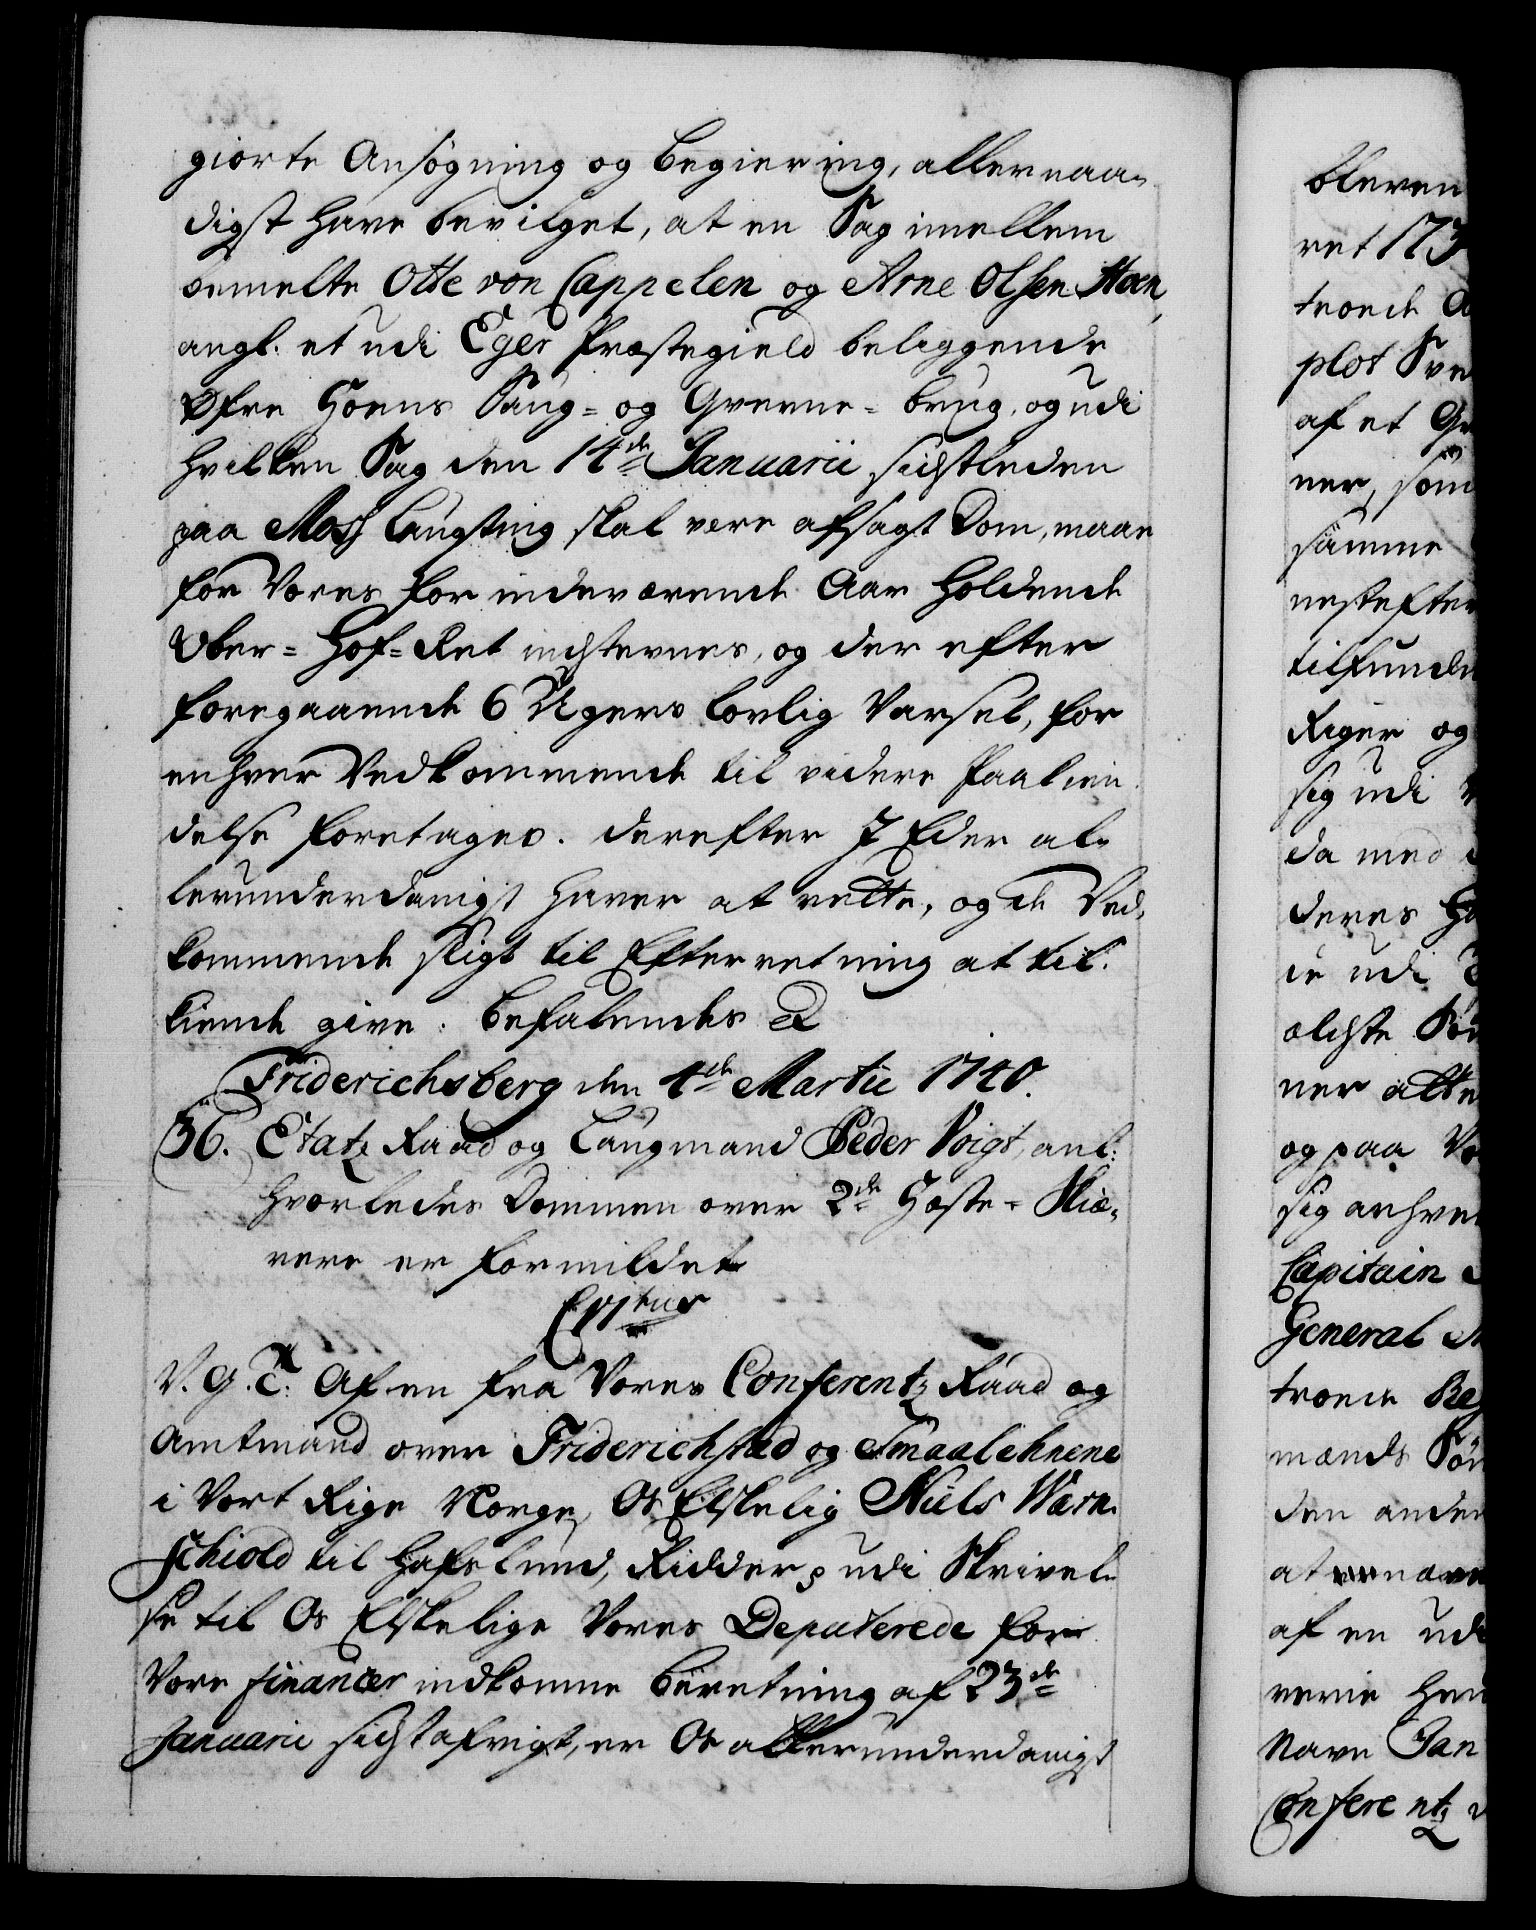 giorte Ansögning og Begiering, allernaa-
digst have bevilget, at en Sag imellem
bemelte Otte von Cappelen og Arne Olsen Hoen,
angl. et udi Eger Præstegield beliggende
Øfre Hoens Saug- og Qverne-brug, og udi
hvilken Sag den 14de Januarii sidstleden
paa Moss Laugting skal være afsagt Dom, maae
for Vores for indeværende Aar holdende
Ober-Hof-Ret indstevnes, og der efter
foregaaende 6 Ugers lovlig Varsel, for
enhver Vedkommende til videre Paakien-
delse foretages. Derefter I Eder al-
lerunderdanigst haver at rette, og de Ved-
kommende sligt til Efterretning at til-
kiende give. Befalendes &
Friderichsberg den 4de Martii 1740.
36. Etatz Raad og Laugmand Peder Voigt, anl:
hvorledes Dommen over 2de Heste-Skiæ-
rere er formildet
C. VItus
V. G. T. Af en fra Vores Conferentz Raad og
Amtmand over Friderichstad og Smaalehnene
i Vort Rige Norge, Os Elskelig Niels Wærn-
schiold til Hafslund, Ridder, udi Skrivel-
se til Os Elskelige Vores Deputerede for
Vore Financer indkomne Beretning af 23de
Januarii sidstafvigt, er Os allerunderdanigst
bleven
ret 173
troende
plot Sve
af et
ner, som
samme
nestefter
tilfunde
Riger og
sig udi
da med
deres
ie udi
ældste Søn
ner atte
og paa
sig anhver
Capitain
General
troende Reg
mands Søn
den anden
at nævn
af en ude
verie hen
Navn Jan
Conferentz